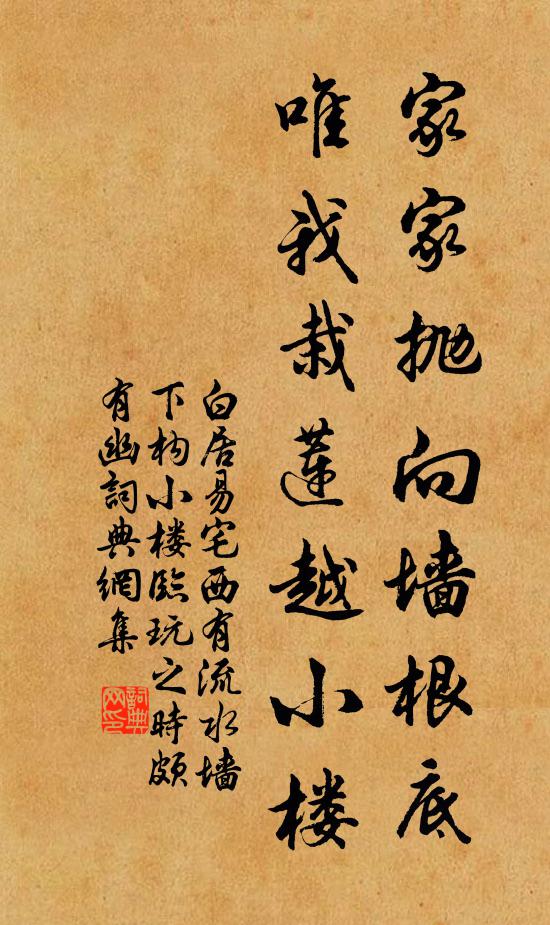 家家抛向墙根底
唯我栽莲越小楼
白居易宅西有流水墙
下构小楼临玩之时颇
有幽詞典網集
詞典
网印